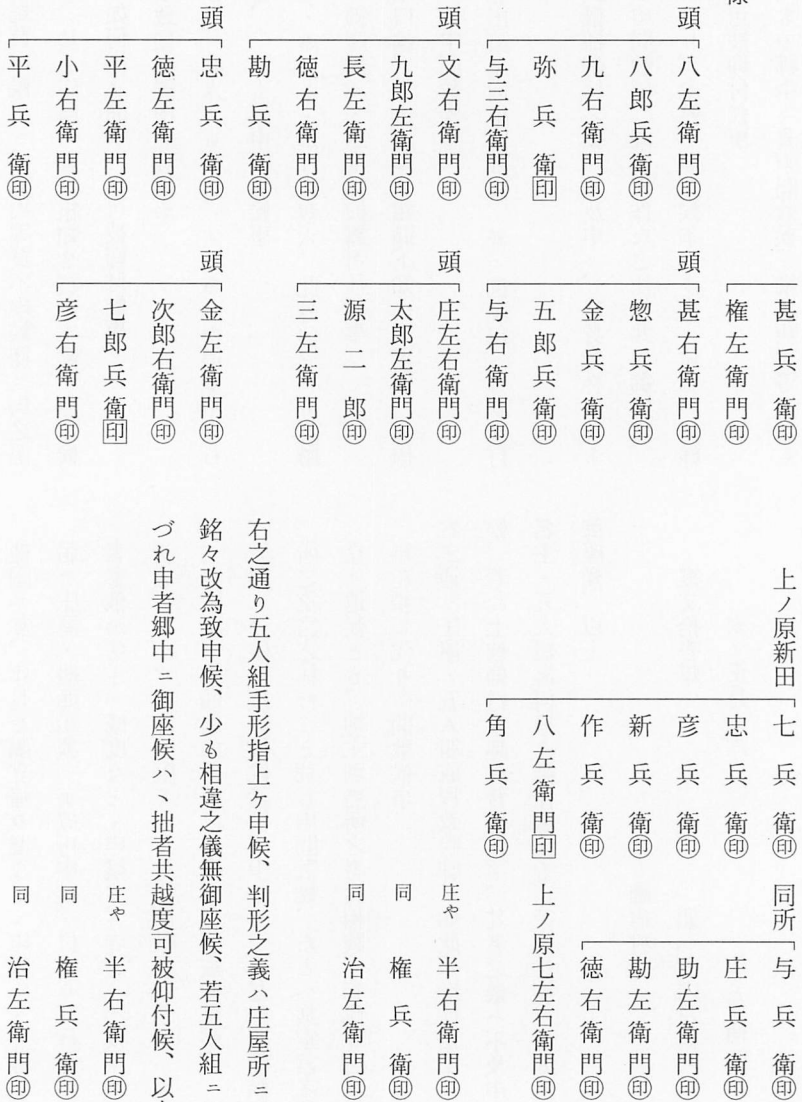 様
頭 八左衛門㊞
八郎兵衛㊞
九右衛門㊞
弥兵衛印
与三右衛門㊞
頭 文右衛門㊞
九郎左衛門㊞
長左衛門㊞
徳右衛門㊞
勘兵衛㊞
頭 忠兵衛㊞
徳左衛門㊞
平左衛門㊞
小右衛門㊞
平兵衛㊞
甚兵衛㊞
権左衛門㊞
頭 甚右衛門㊞
惣兵衛㊞
金兵衛㊞
五郎兵衛㊞
与右衛門㊞
頭 庄左右衛門㊞
太郎左衛門㊞
源二郎㊞
三左衛門㊞
頭 金左衛門㊞
次郎右衛門㊞
七郎兵衛印
彦右衛門㊞
上ノ原新田
七兵衛㊞
忠兵衛㊞
彦兵衛㊞
新兵衛㊞
作兵衛㊞
八左衛門印
角兵衛㊞
同所
与兵衛㊞
庄兵衛㊞
助左衛門㊞
勘左衛門㊞
徳右衛門㊞
上ノ原七左右衛門㊞
庄や 半右衛門㊞
同 権兵衛㊞
同 治左衛門㊞
右之通り五人組手形指上ケ申候、判形之義ハ庄屋所ニ
銘々改為致申候、少も相違之儀無御座候、若五人組ニ
づれ申者郷中ニ御座候ハヽ拙者共越度可被仰付候、以
庄や 半右衛門㊞
同 権兵衛㊞
同 治左衛門㊞